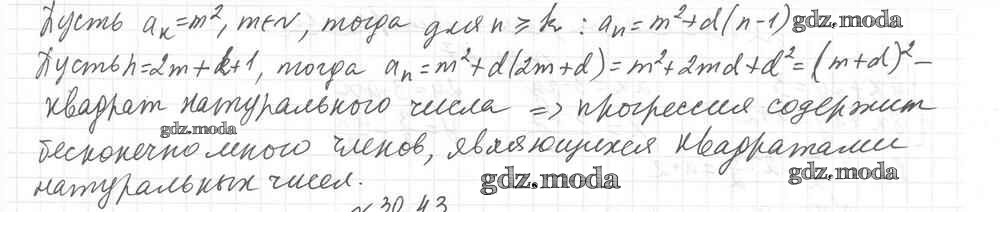 Пусть aₖ=m², m∈N, тогда для n ≥ k : aₙ=m²+d(n-1) gdz.moda
Пусть n=2m+k+1, тогда aₙ=m²+d(2m+d)=m²+2md+d²=(m+d)²–
квадрат натурального числа => прогрессия содержит
gdz.moda
бесконечно много членов, являющихся квадратами
натуральных чисел. gdz.moda gdz.moda
30.43